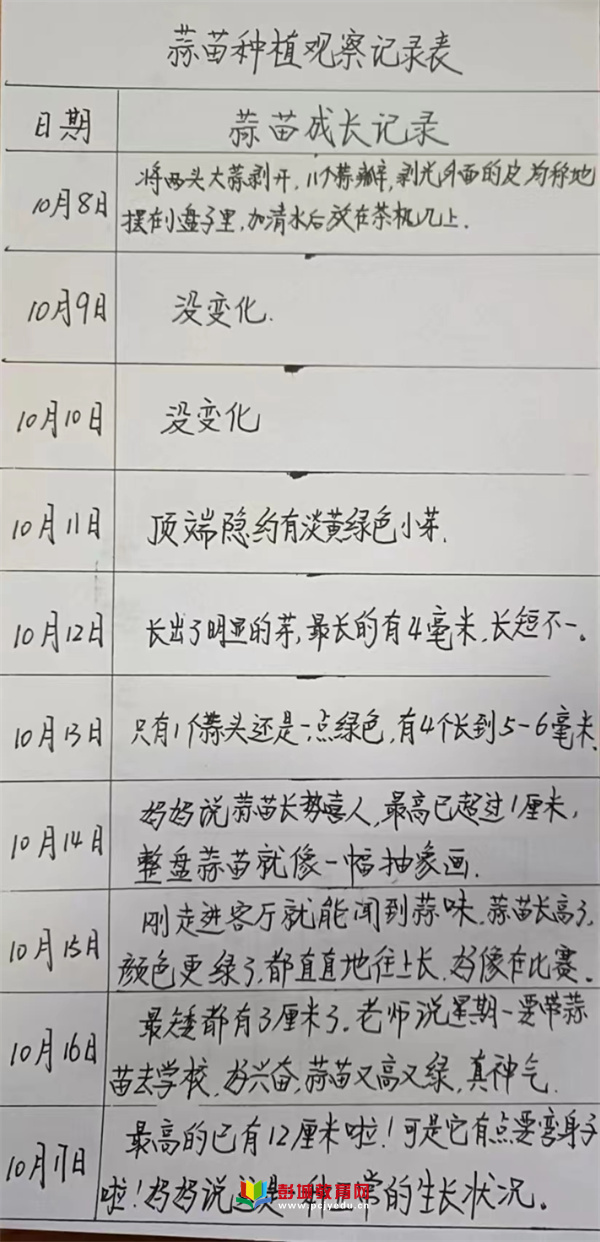 蒜苗种植观察记录表
日期 蒜苗成长记录
10月8日 将两头大蒜剥开,11个蒜瓣,剥光外面的皮均称地
摆在小盘子里,加清水后放在茶机几上.
10月9日 没变化.
10月10日 没变化
10月11日 顶端隐约有淡黄绿色小芽.
10月12日 长出了明显的芽,最长的有4毫米,长短不一。
10月13日 只有1个蒜头还是一点绿色,有4个长到5-6毫米.
10月14日 妈妈说蒜苗长势喜人,最高已超过1厘米,
整盘蒜苗就像一幅抽象画.
10月15日 刚走进客厅就能闻到蒜味,蒜苗长高了,
颜色更绿了,都直直地往上长,好像在比赛。
10月16日 最矮都有3厘米了.老师说星期一要带蒜
苗去学校,好兴奋,蒜苗又高又绿,真神气.
10月17日 最高的已有12厘米啦!可是它有点要弯身子
啦!妈妈说这是 常的生长状况。
彭城教育网
www.pcjyedu.cn